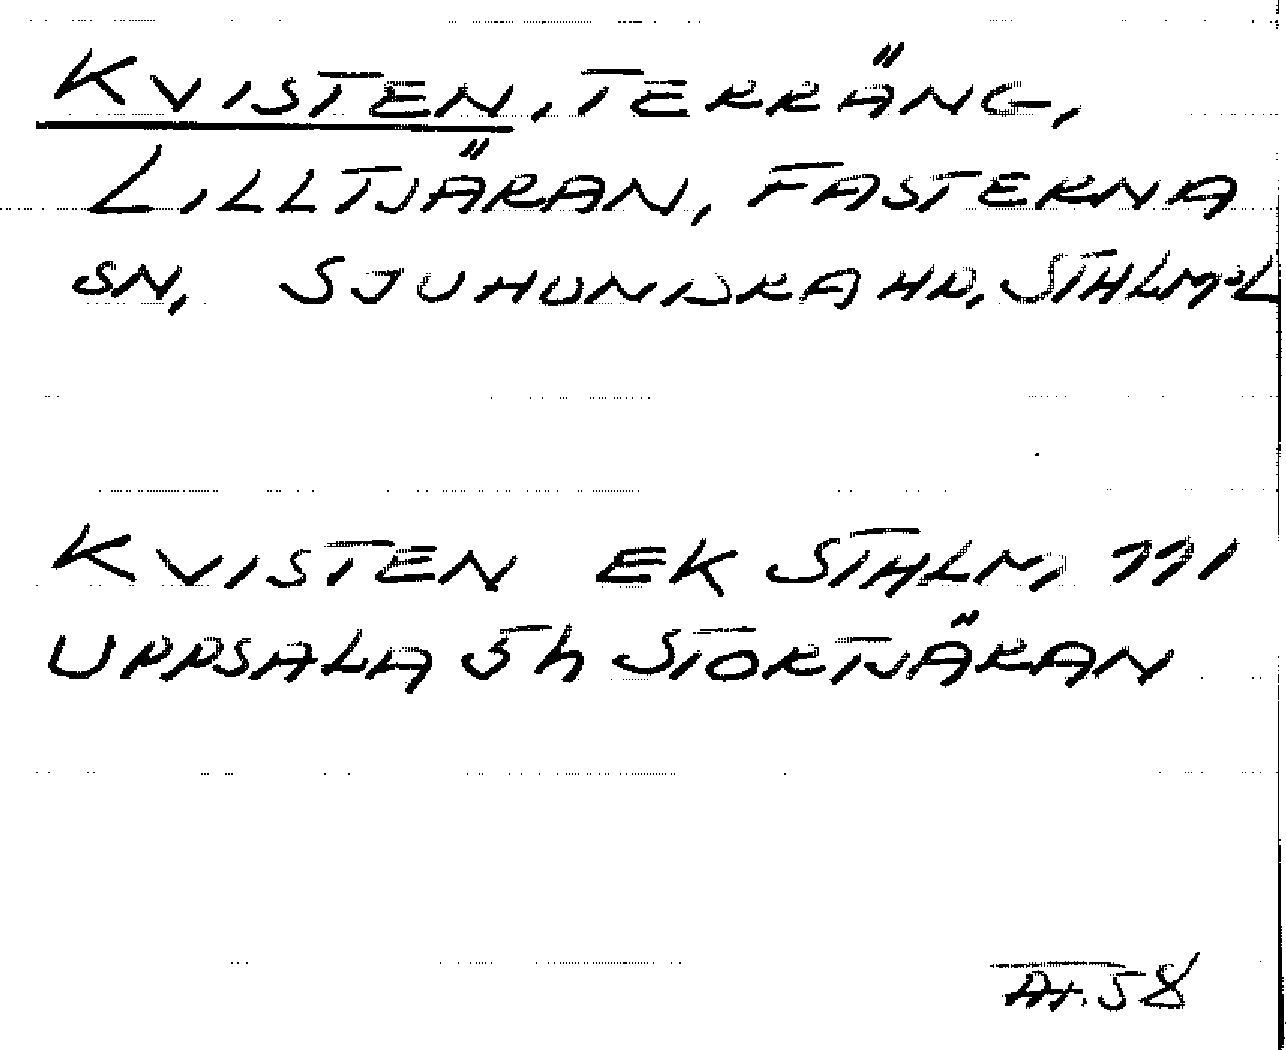 KVISTEN, TERRÄNG,
LILLTJÄRAN, FASTERNA
SN, SJUHUNDRA HD, STHLMS L
KVISTEN EK STHLM, 111
UPPSALA 5h STORTJÄRAN
58